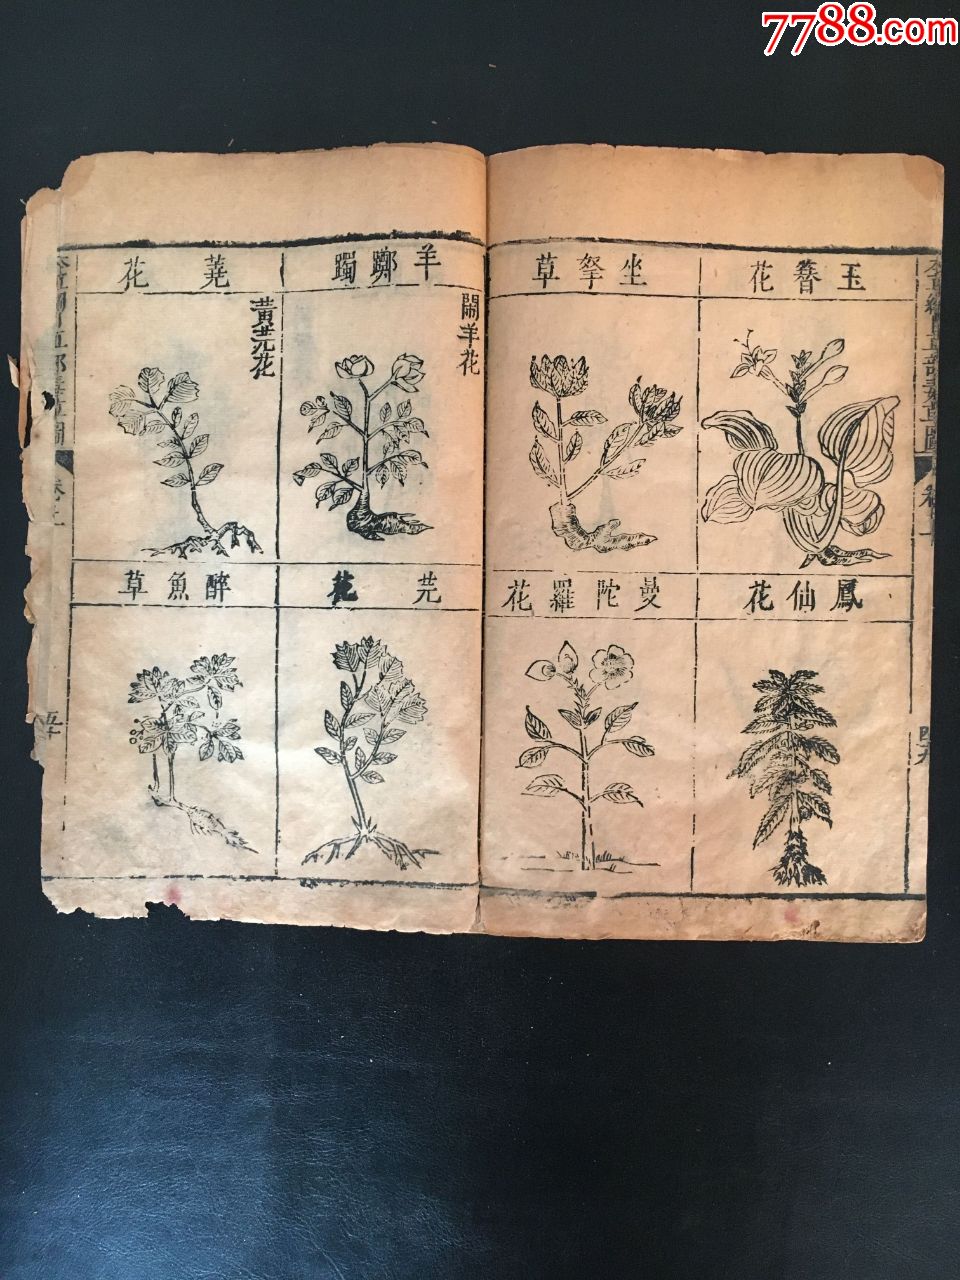 7788.com
玉簪花
坐拏草
鳳仙花
曼陀羅花
四九
羊躑躅
鬧羊花
蕘花
黃芫花
芫花
醉魚草
五十